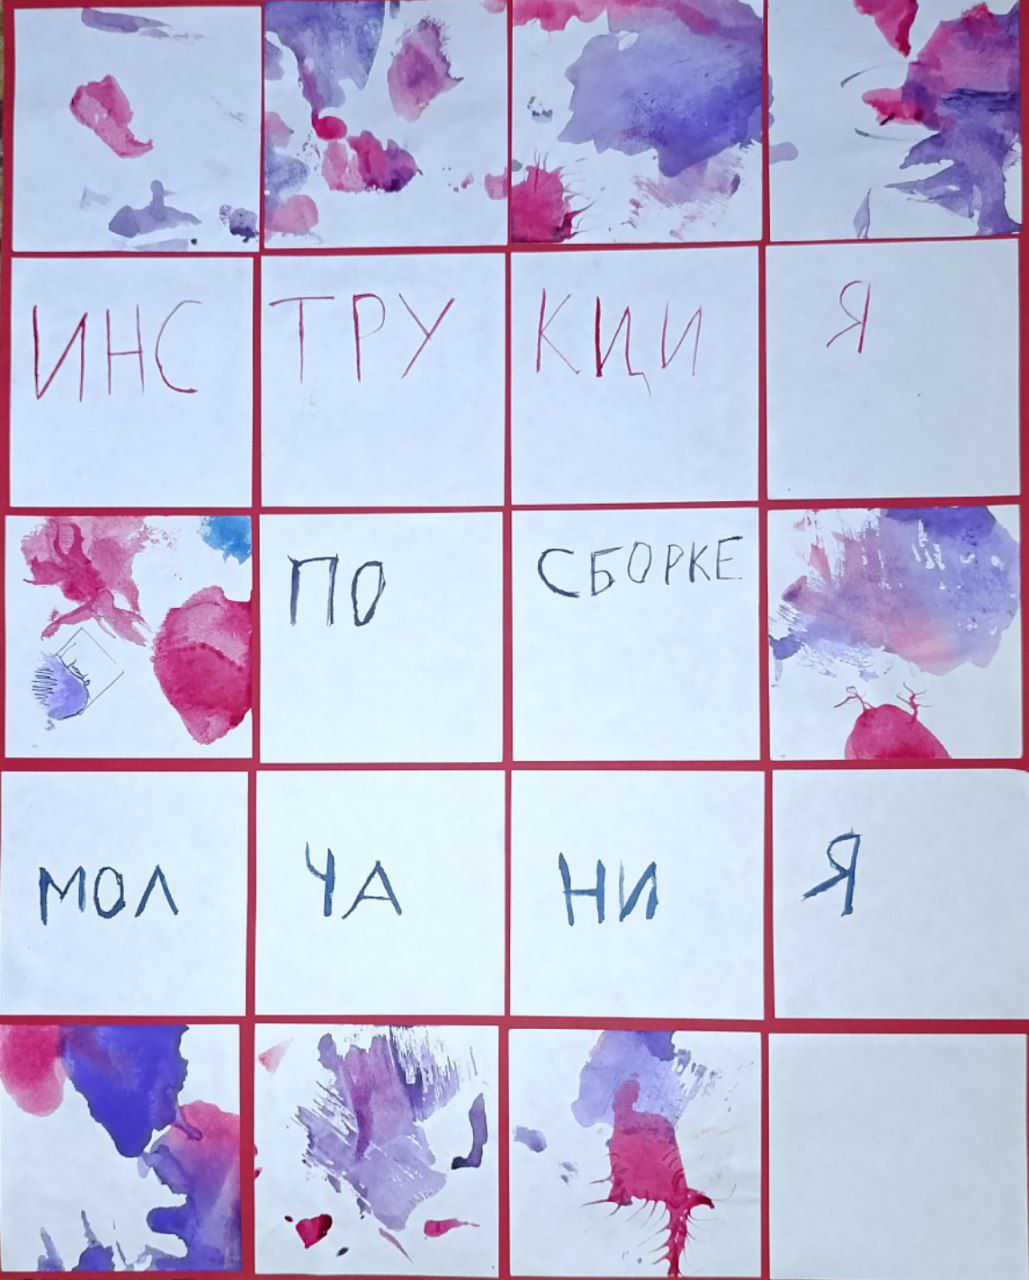 ИНСТРУКЦИЯ
ПО СБОРКЕ
МОЛЧАНИЯ